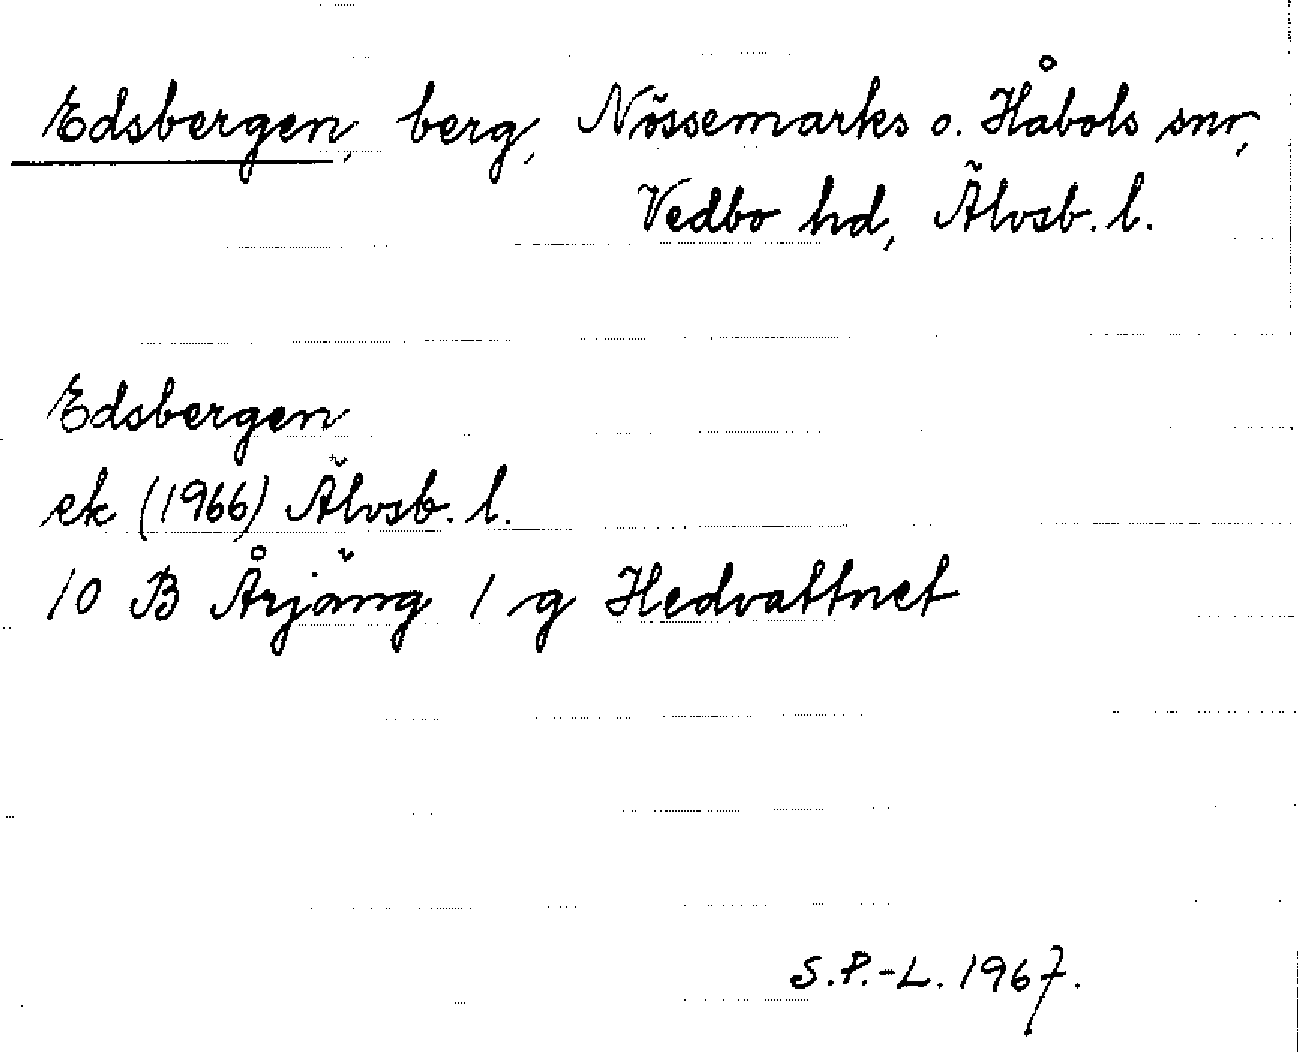 Edsbergen, berg, Nössemarks o. Håbols snr,
Vedbo hd, Älvsb. l.
Edsbergen
ek (1966) Älvsb. l.
10 B Årjäng 1 g Hedvattnet
S.P.-L. 1967.